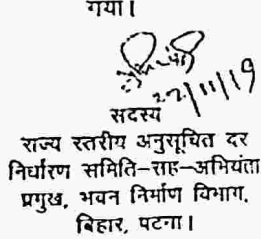 गया।
22/11/19
सदस्य
राज्य स्तरीय अनुसूचित दर
निर्धारण समिति-सह-अभियंता
प्रमुख, भवन निर्माण विभाग,
बिहार, पटना।